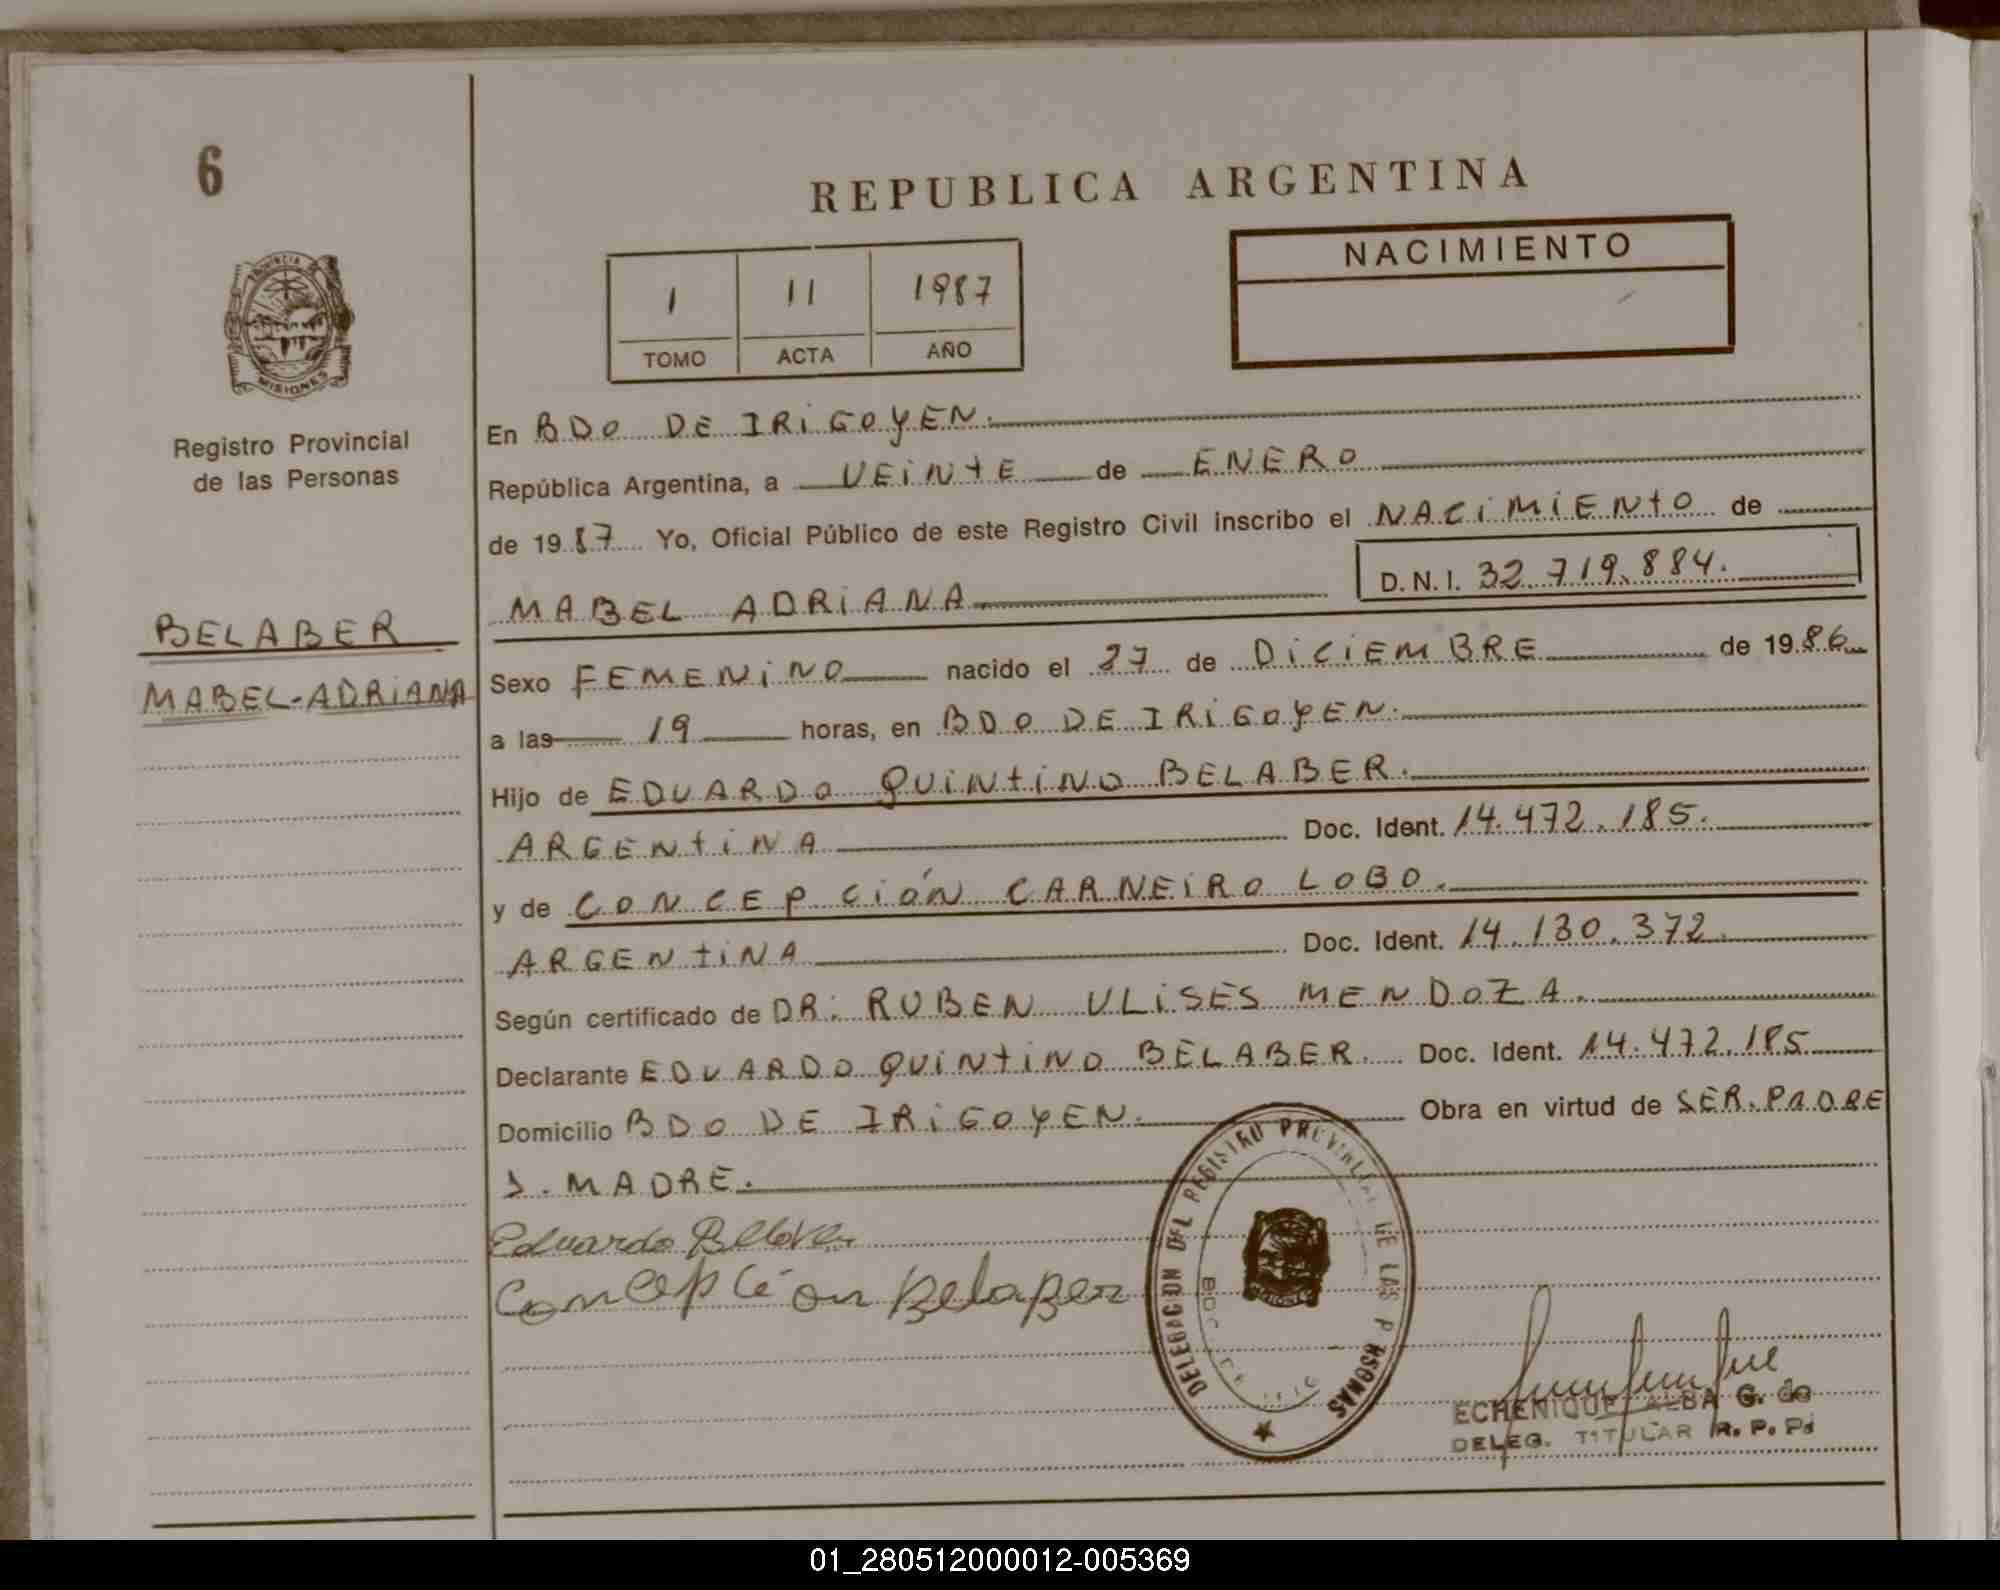 6
REPUBLICA ARGENTINA
NACIMIENTO
1 11 1987
TOMO ACTA AÑO
PROVINCIA DE
MISIONES
Registro Provincial
de las Personas
BELABER
MABEL-ADRIANA
En BDO DE IRIGOYEN.
República Argentina, a VEINTE de ENERO
de 1987 Yo, Oficial Público de este Registro Civil inscribo el NACIMIENTO de
MABEL ADRIANA D.N.I. 32.719.884.
Sexo FEMENINO nacido el 27 de DICIEMBRE de 1986
a las 19 horas, en BDO DE IRIGOYEN.
Hijo de EDUARDO QUINTINO BELABER.
ARGENTINA Doc. Ident. 14.472.185.
y de CONCEPCIÓN CARNEIRO LOBO.
ARGENTINA Doc. Ident. 14.130.372.
Según certificado de DR: RUBEN ULISES MENDOZA.
Declarante EDUARDO QUINTINO BELABER. Doc. Ident. 14.472.185
Domicilio BDO DE IRIGOYEN. Obra en virtud de SER.PADRE
Y.MADRE.
Eduardo
Concepción Belaber
DELEGACION DEL REGISTRO PROVINCIAL DE LAS P RSONAS
ECHENIQUE ALBA G. de
DELEG. TITULAR R. P. Ps
01_280512000012-005369